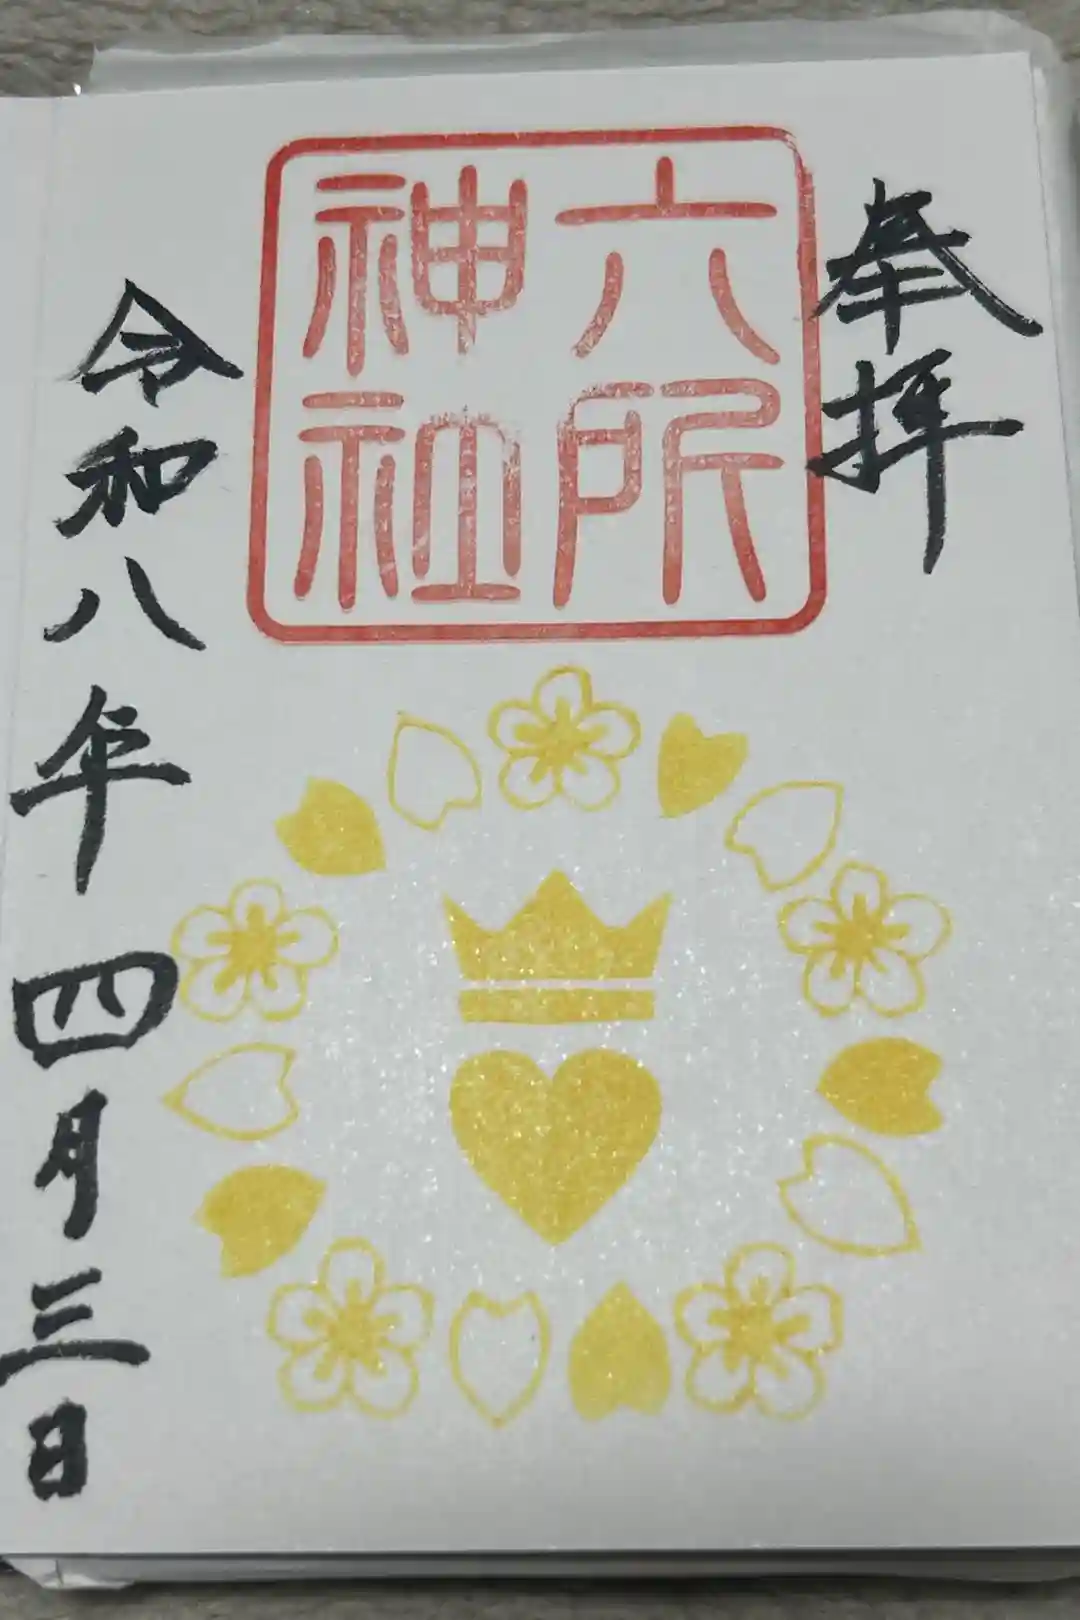 奉拝
六所
神社
令和八年四月三日